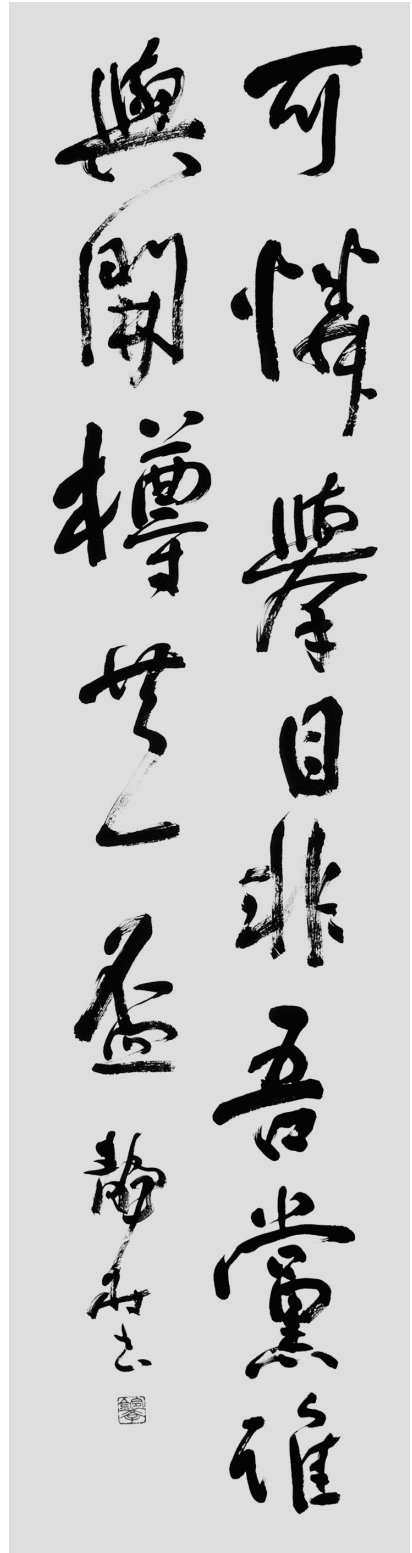 可憐舉目非吾黨誰
與開樽共一盃
靜村志